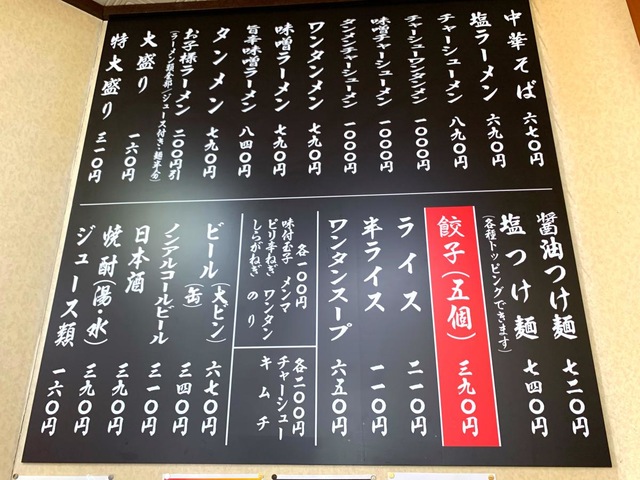 中華そば 六七〇円
塩ラーメン 六九〇円
チャーシューメン 八九〇円
チャーシューワンタンメン 一〇〇〇円
味噌チャーシューメン 一〇〇〇円
タンメンチャーシューメン 一〇〇〇円
ワンタンメン 七九〇円
味噌ラーメン 七九〇円
旨辛味噌ラーメン 八四〇円
タンメン 七九〇円
お子様ラーメン 二〇〇円引
(ラーメン類全部/ジュース付き・麺半分)
大盛り 一六〇円
特大盛り 三一〇円
醤油つけ麺 七二〇円
塩つけ麺 七四〇円
(各種トッピングできます)
餃子(五個) 三九〇円
ライス 二一〇円
半ライス 一一〇円
ワンタンスープ 六五〇円
各一〇〇円
味付玉子 メンマ
ピリ辛ねぎ ワンタン
しらがねぎ のり
各二〇〇円
チャーシュー
キムチ
ビール(大ビン) 六七〇円
(缶) 三四〇円
ノンアルコールビール 三一〇円
日本酒 三九〇円
焼酎(湯・水) 三九〇円
ジュース類 一六〇円